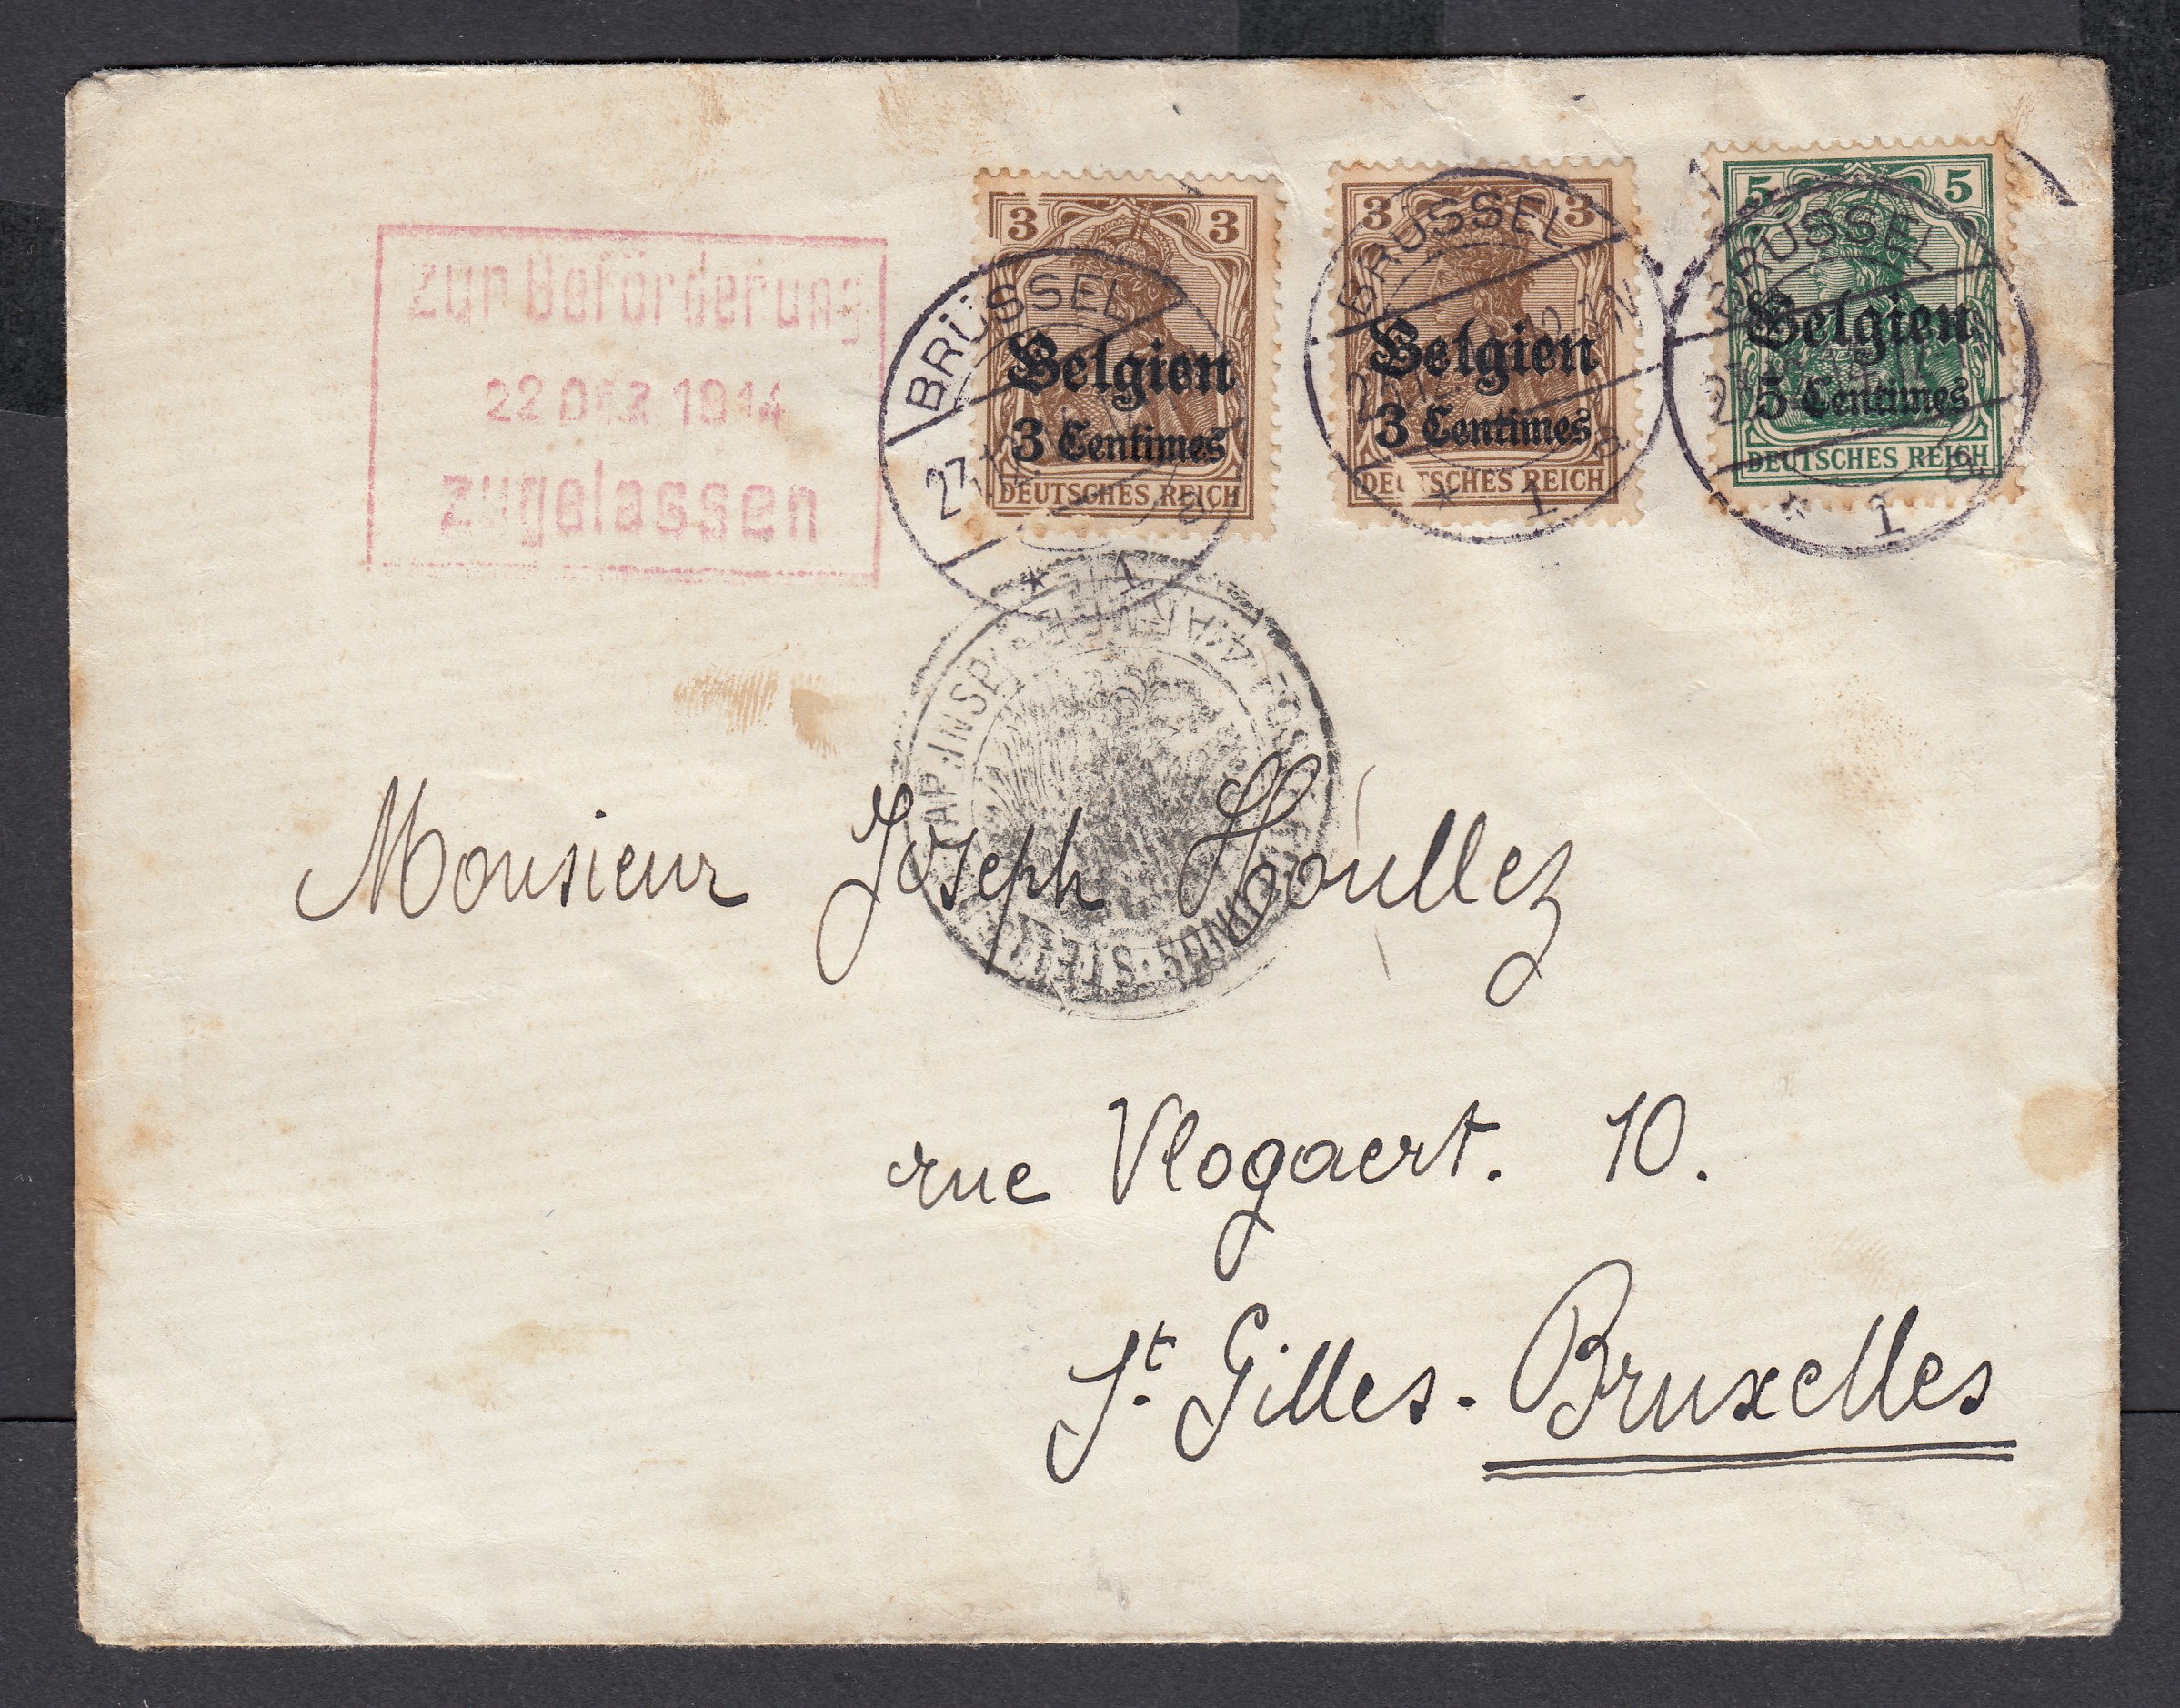 zur Beförderung
22 DEZ 1914
zugelassen
3 3
BRÜSSEL
Belgien
3 Centimes
DEUTSCHES REICH
27
* 1 a
3 3
BRÜSSEL
Belgien
3 Centimes
DEUTSCHES REICH
* 1 a
5 5
BRÜSSEL
Belgien
5 Centimes
DEUTSCHES REICH
* 1 a
Monsieur Joseph Houllez
rue Vlogaert. 10.
St. Gilles - Bruxelles